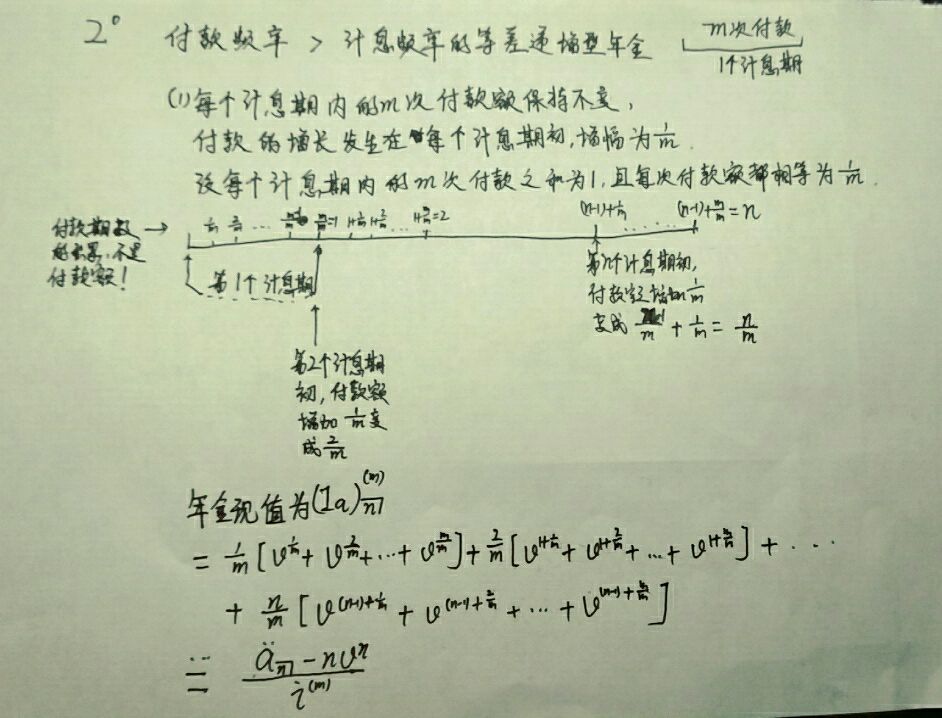 2° 付款频率 > 计息频率的等差递增型年金 m次付款
1个计息期
(1) 每个计息期内的m次付款额保持不变,
付款的增长发生在每个计息期初,增幅为1/m.
设每个计息期内的m次付款之和为1,且每次付款额都相等为1/m.
付款期数的长累,不是付款额! →
1/m 2/m … m/m=1 1+1/m 1+2/m … 1+m/m=2 (n-1)+1/m … (n-1)+m/m=n
第1个计息期
第n个计息期初,
付款额增加1/m
变成 n-1/m + 1/m = n/m
第2个计息期
初,付款额
增加1/m变
成2/m
年金现值为(Ia)n^(m)
= 1/m [v^(1/m) + v^(2/m) + … + v^(m/m)] + 2/m [v^(1+1/m) + v^(1+2/m) + … + v^(1+m/m)] + …
+ n/m [v^((n-1)+1/m) + v^((n-1)+2/m) + … + v^((n-1)+m/m)]
= (än - nv^n) / i^(m)